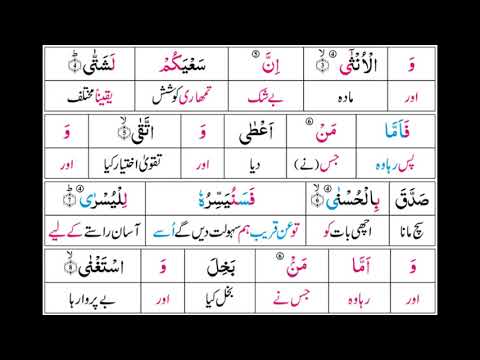 وَ الْاُنْثٰۤى ﴿۳﴾ اِنَّ ⑤ سَعْيَكُمْ لَشَتّٰى ﴿۴﴾
اور مادہ بے شک تمھاری کوشش یقیناً مختلف
فَاَمَّا مَنْ ⑥ اَعْطٰى وَ اتَّقٰى ﴿۵﴾ وَ
پس رہا وہ جس (نے) دیا اور تقویٰ اختیار کیا اور
صَدَّقَ بِالْحُسْنٰى ④ ﴿۶﴾ فَسَنُيَسِّرُهٗ لِلْيُسْرٰى ④ ﴿۷﴾
سچ مانا اچھی بات کو تو عن قریب ہم سہولت دیں گے اُسے آسان راستے کے لیے
وَ اَمَّا مَنْۢ ⑥ بَخِلَ وَ اسْتَغْنٰى ﴿۸﴾
اور رہا وہ جس نے بخل کیا اور بے پروا رہا